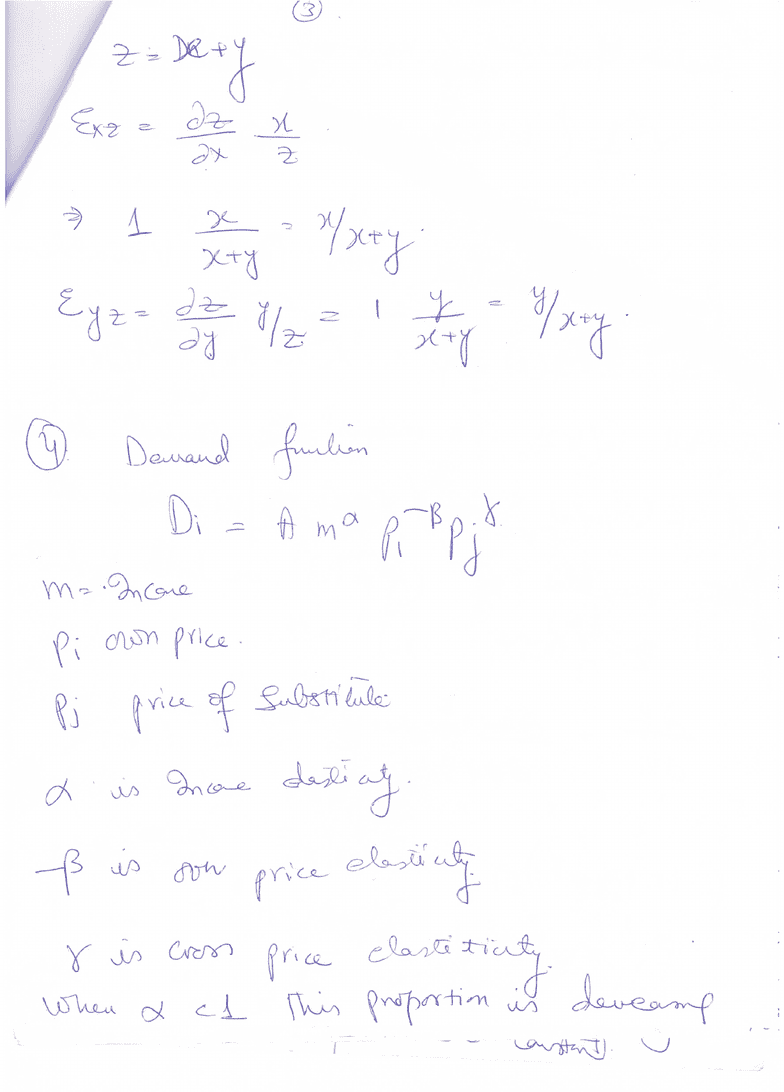 3
z = x + y
Ɛxz = ∂z/∂x x/z
⇒ 1 x/x+y = x/x+y .
Ɛyz = ∂z/∂y y/z = 1 y/x+y = y/x+y .
4 Demand function
Di = A m^α Pi^-β Pj^γ
m = Income
Pi own price .
Pj price of Substitute
α is Income elasticity .
-β is own price elasticity
γ is cross price
When α < 1 This proportion is
constant